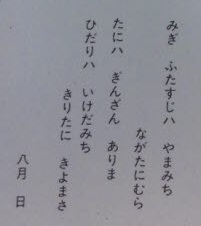 みぎ　ふたすじハ　やまみち
ながたにむら
たにハ　ぎんざん　ありま
ひだりハ　いけだみち
きりたに　きよまさ
八月　日